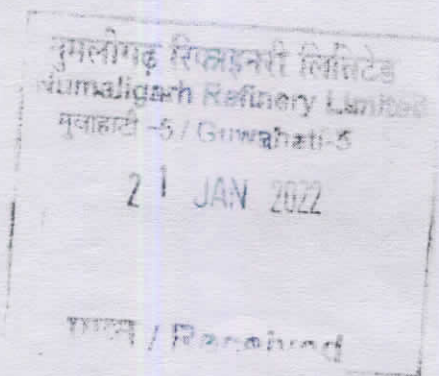 नुमलीगढ़ रिफाइनरी लिमिटेड
Numaligarh Refinery Limited
गुवाहाटी -5 / Guwahati-5
21 JAN 2022
प्राप्त / Received